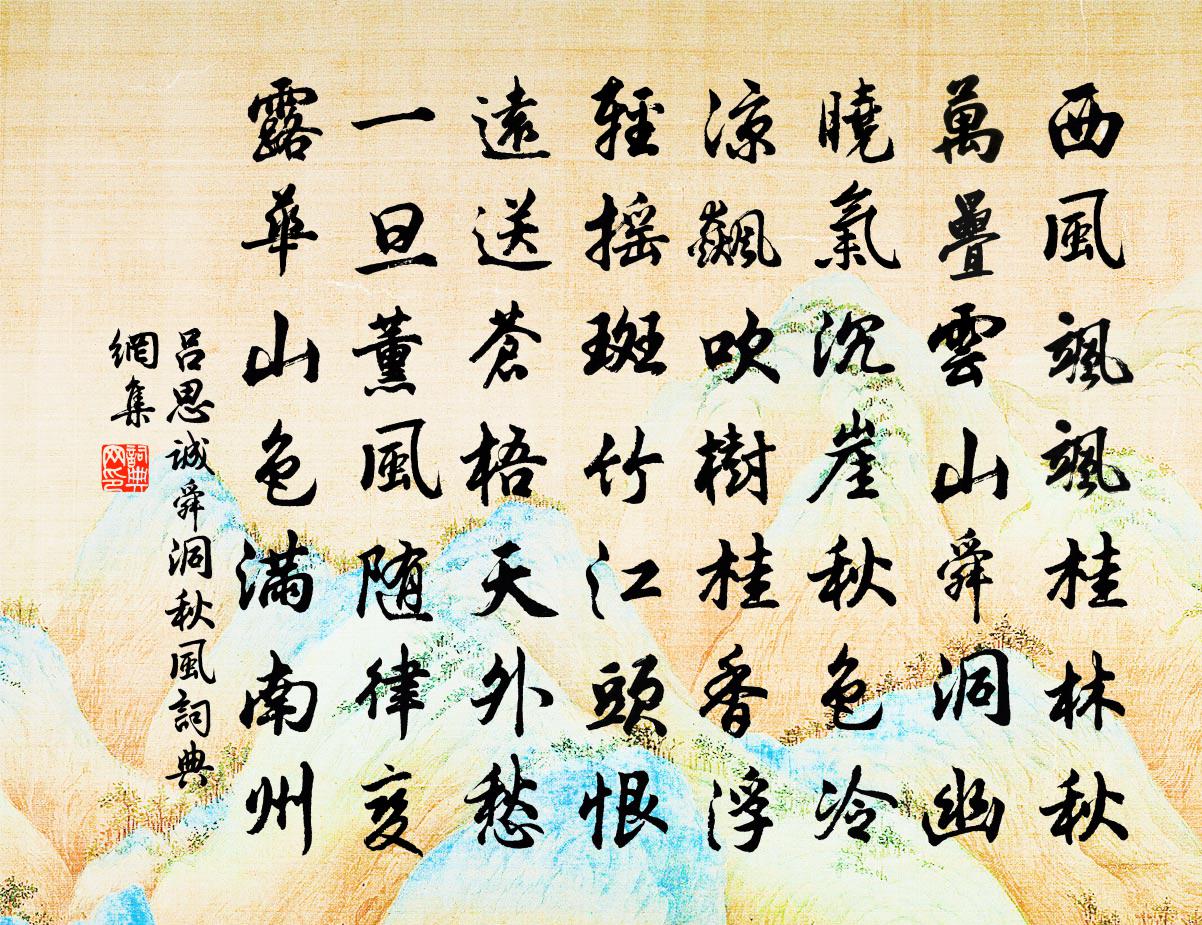 西風颯颯桂林秋
萬疊雲山舜洞幽
曉氣沉崖秋色冷
涼飆吹樹桂香浮
輕搖斑竹江頭恨
遠送蒼梧天外愁
一旦薰風隨律变
露華山色滿南州
呂思誠舜洞秋風詞典
網集
詞典
网印